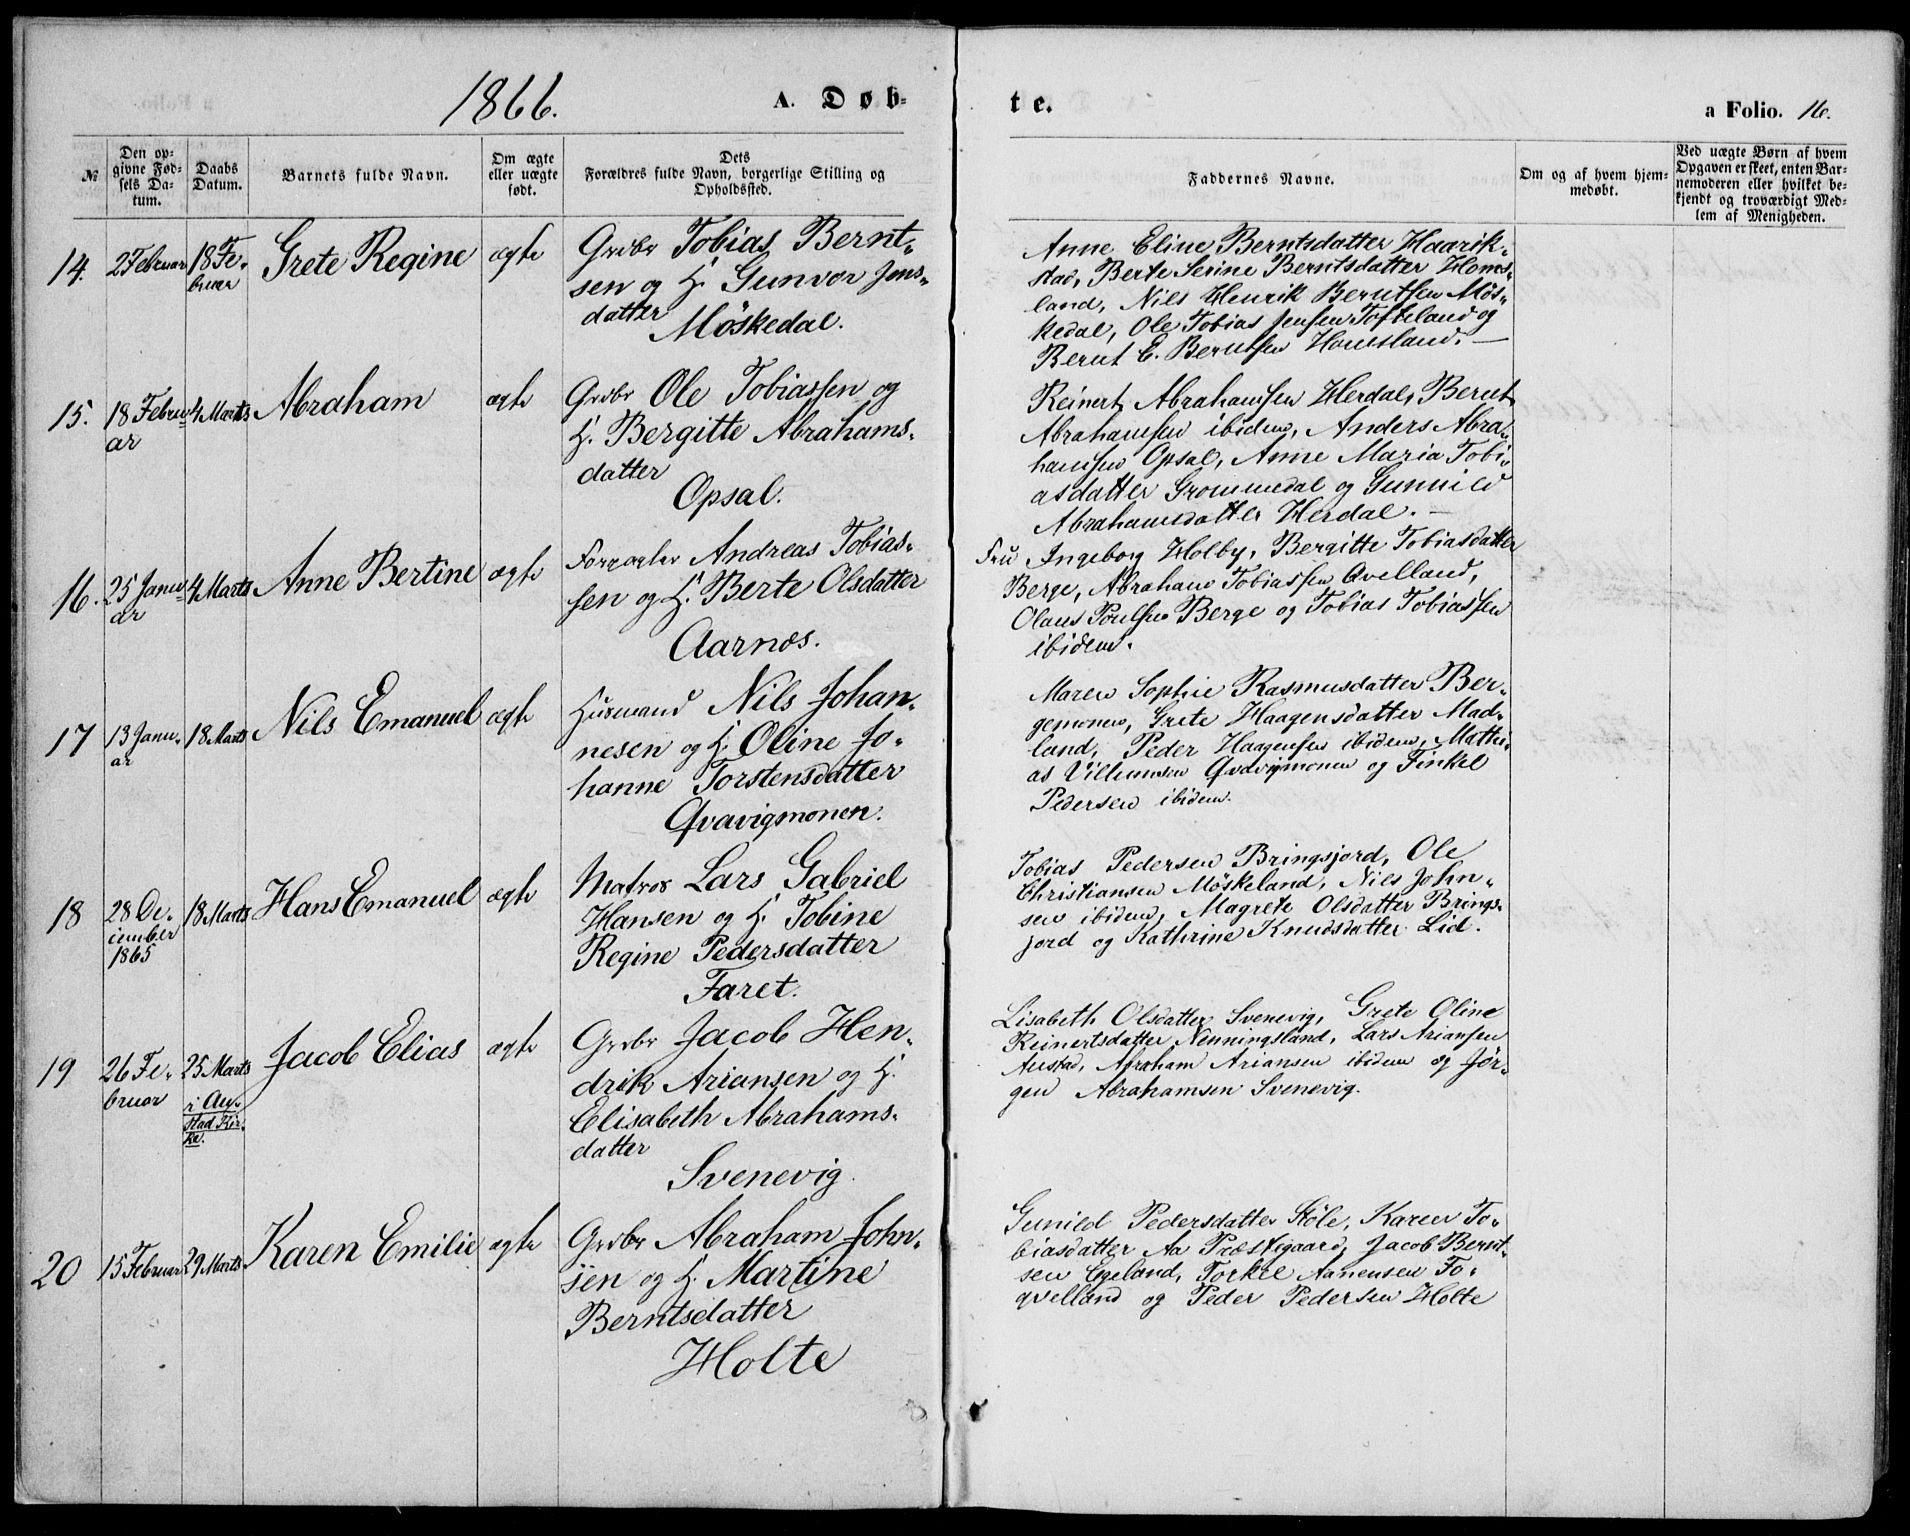 1866.
A. Døb-
te.
a Folio. 16.
№
Den op-
givne Fød-
sels Da-
tum.
Daabs
Datum.
Barnets fulde Navn.
Om ægte
eller uægte
født.
Dets
Forældres fulde Navn, borgerlige Stilling og
Opholdssted.
Faddernes Navne.
Om og af hvem hjem-
medøbt.
Ved uægte Børn af hvem
Opgaven er skeet, enten Bar-
nemoderen eller hvilket be-
kjendt og troværdigt Med-
lem af Menigheden.
14.
2 Februar
18 Fe-
bruar
Grete Regine
ægte
Grdbr Tobias Bernt-
sen og H. Gunvor Jens-
datter
Möskedal.
Anne Eline Berntsdatter Haarik-
stad, Berte Serine Berntsdatter Homs-
land, Nils Henrik Berntsen Mös-
kedal, Ole Tobias Jensen Tofteland og
Bernt E. Berntsen Homsland. —
15.
18 Febru-
ar
4 Marts
Abraham
ægte
Grdbr Ole Tobiassen og
H. Bergitte Abrahams-
datter
Opsal.
Reinert Abrahamsen Herdal, Bernt
Abrahamsen ibidem, Anders Abra-
hamsen Opsal, Anne Maria Tobi-
asdatter Grommedal og Gunnild
Abrahamsdatter Herdal. —
16.
25 Janu-
ar
4 Marts
Anne Bertine
ægte
Forpagter Andreas Tobias-
sen og H. Berte Olsdatter
Aarnæs.
Fru Ingeborg Holby, Bergitte Tobiasdatter
Berge, Abraham Tobiassen Qvelland,
Olaus Poulsen Berge og Tobias Tobiassen
ibidem.
17
13 Janu-
ar
18 Marts
Nils Emanuel
ægte
Husmand Nils Johan-
nesen og H. Oline Jo-
hanne Torstensdatter
Qvavigmonen.
Maren Sophie Rasmusdatter Ber-
gemonen, Grete Haagensdatter Mad-
land, Peder Haagensen ibidem, Mathi-
as Villumsen Qvavigmonen og Finkel
Pedersen ibidem.
18
28 De-
cember
1865
18 Marts
Hans Emanuel
ægte
Matros Lars Gabriel
Hansen og H. Tobine
Regine Pedersdatter
Faret.
Tobias Pedersen Bringsjord, Ole
Christiansen Möskeland, Nils John-
sen ibidem, Magrete Olsdatter Brings-
jord og Kathrine Knudsdatter Lid.
19
26 Fe-
bruar
25 Marts
i Au-
stad Kir-
ke.
Jacob Elias
ægte
Grdbr Jacob Hen-
drik Ariansen og H.
Elisabeth Abrahams-
datter
Svenevig.
Lisabeth Olsdatter Svenevig, Grete Oline
Reinertsdatter Nenningsland, Lars Ariansen
Austad, Abraham Ariansen ibidem og Jör-
gen Abrahamsen Svenevig.
20
15 Februar
29 Marts
Karen Emilie
ægte
Grdbr Abraham John-
sen og H. Martine
Berntsdatter
Holte
Gunild Pedersdatter Stöle, Karen To-
biasdatter Aa Præstegaard, Jacob Bernt-
sen Egeland, Torkel Aanensen Fo-
qvelland og Peder Pedersen Holte